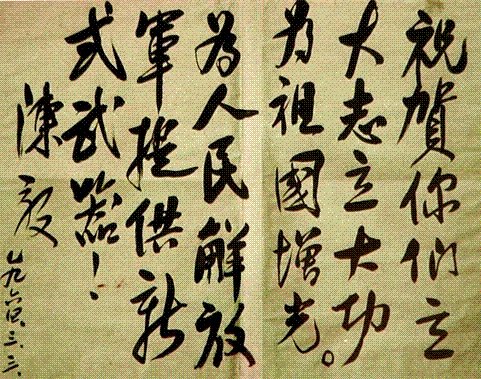 祝賀你们立
大志立大功
為祖國增光。
為人民解放
軍提供新
式武器！
陳毅
一九六〇.三.三.